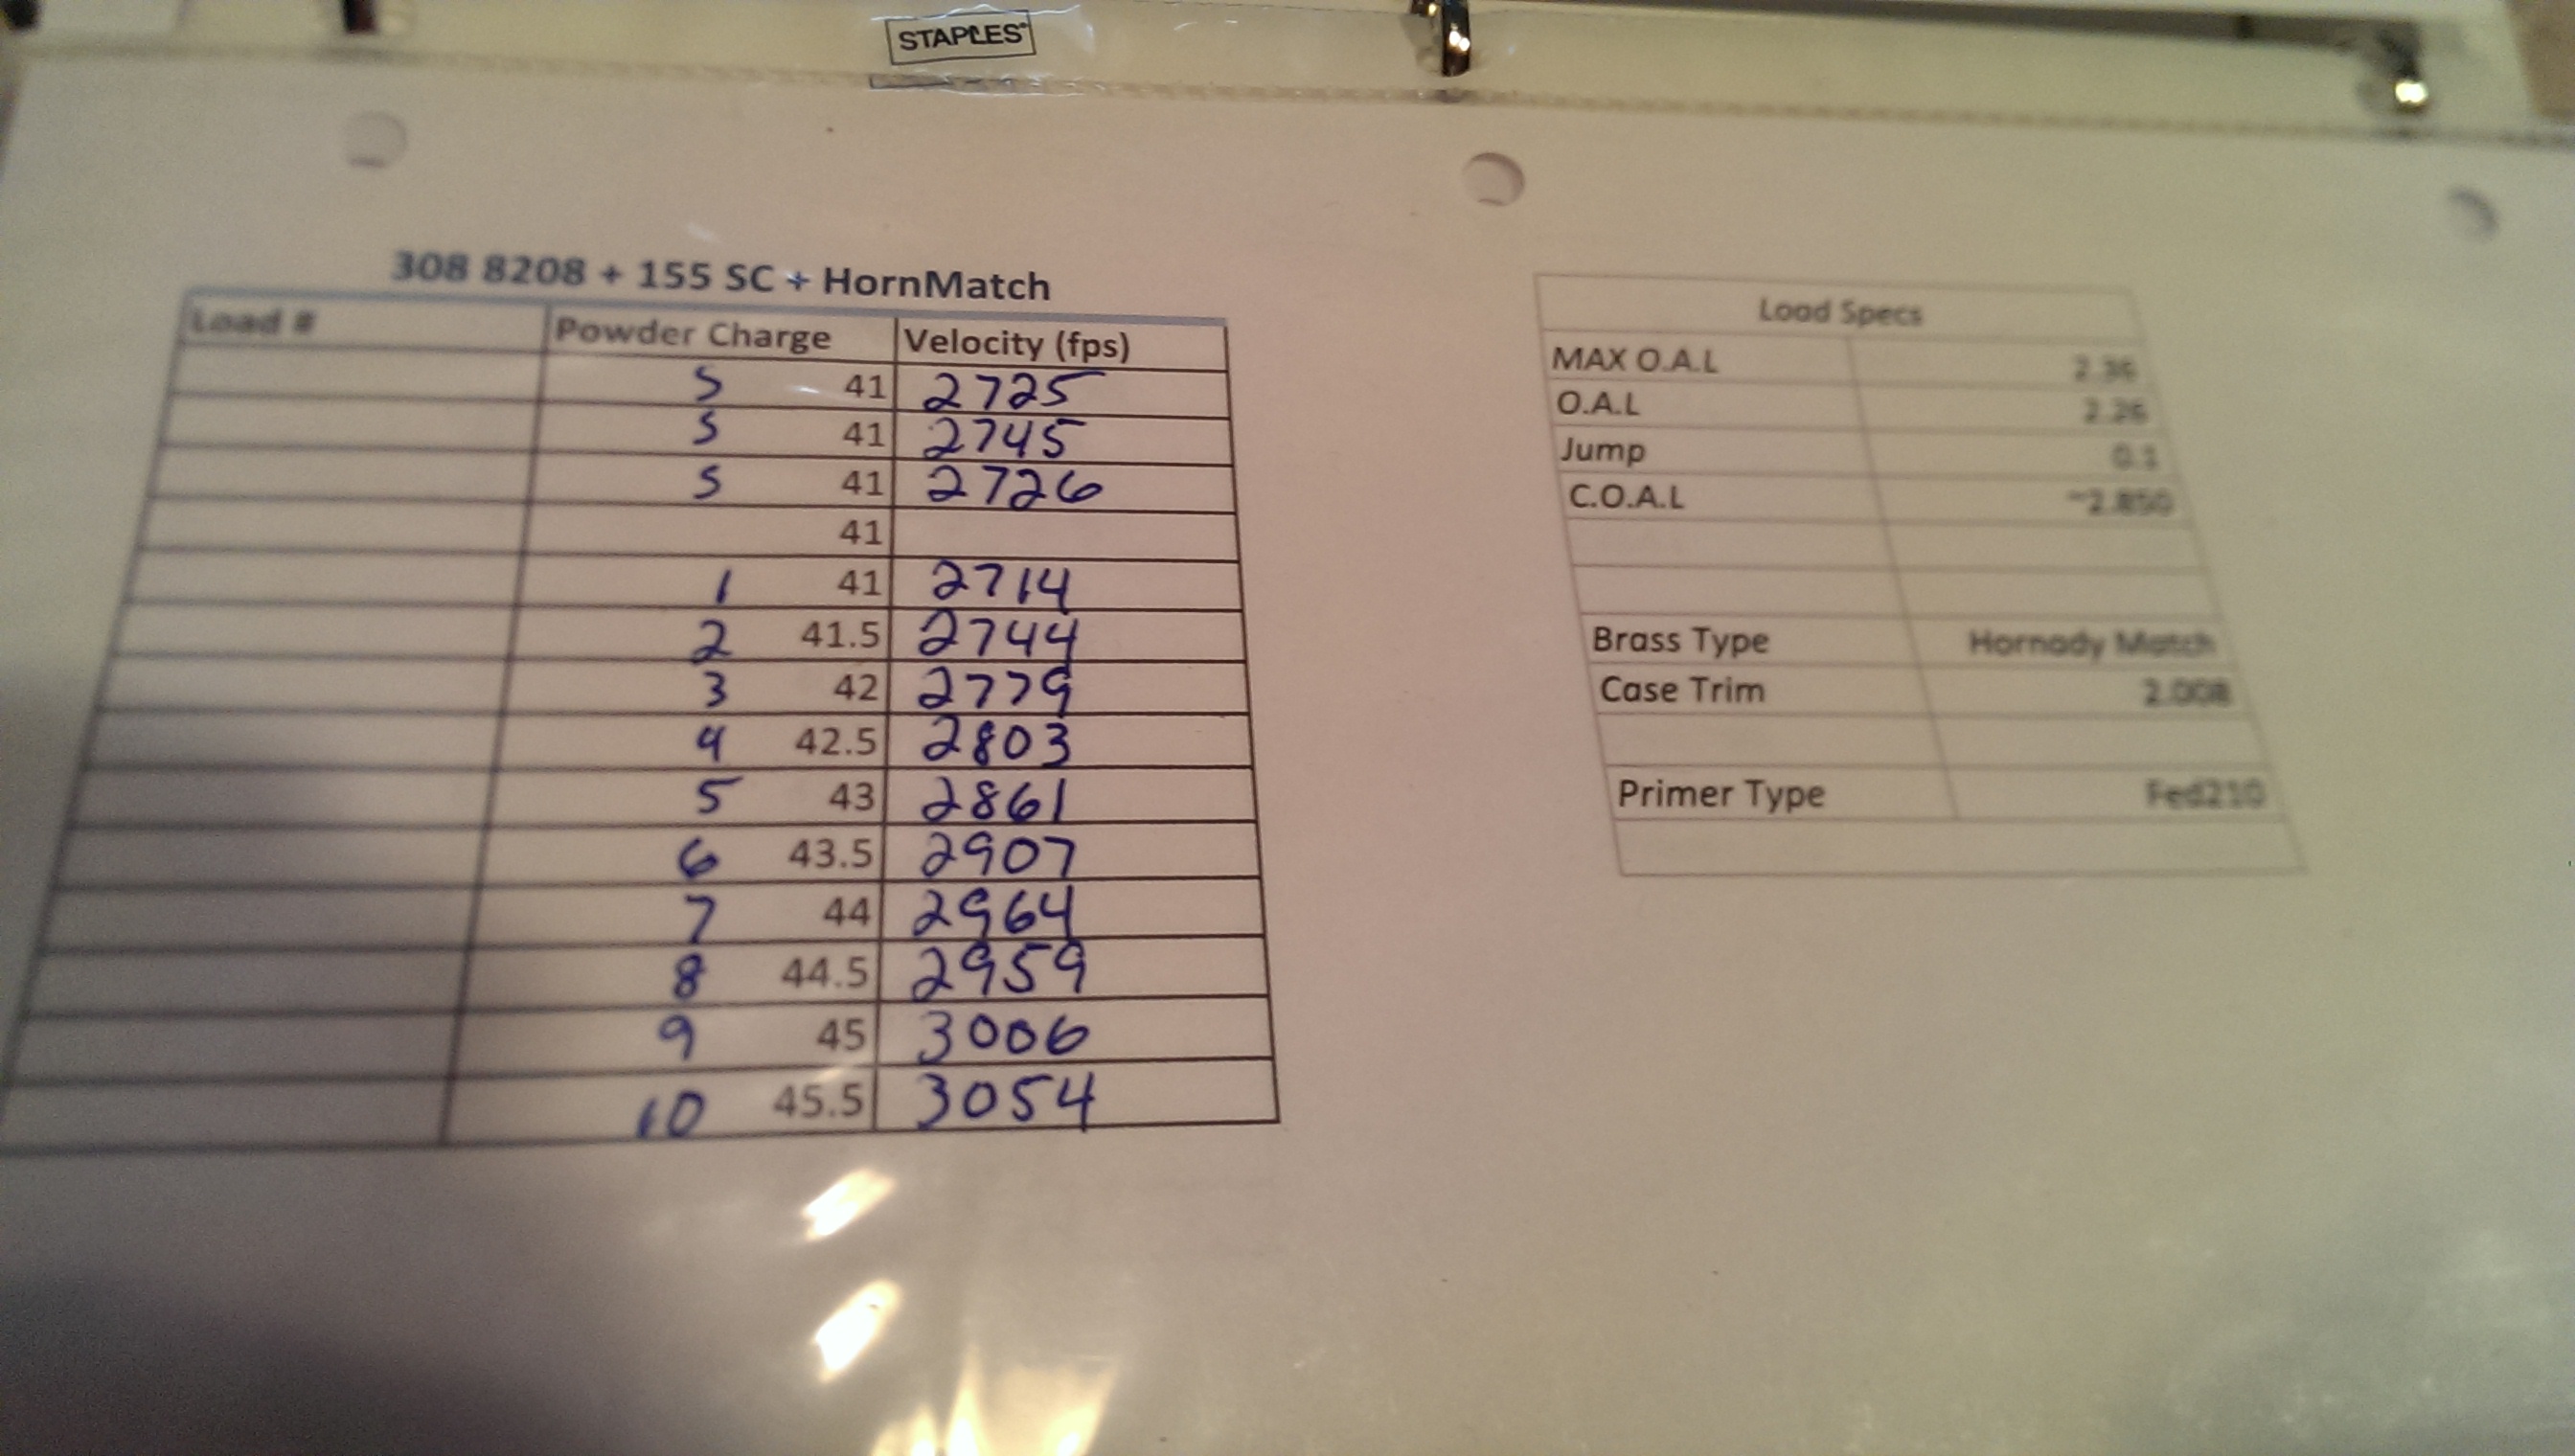 STAPLES
308 8208 + 155 SC + HornMatch
Load # Powder Charge Velocity (fps)
S 41 2725
S 41 2745
S 41 2726
41
1 41 2714
2 41.5 2744
3 42 2779
4 42.5 2803
5 43 2861
6 43.5 2907
7 44 2964
8 44.5 2959
9 45 3006
10 45.5 3054
Load Specs
MAX O.A.L 2.36
O.A.L 2.26
Jump 0.1
C.O.A.L ~2.850
Brass Type Hornady Match
Case Trim 2.008
Primer Type Fed210